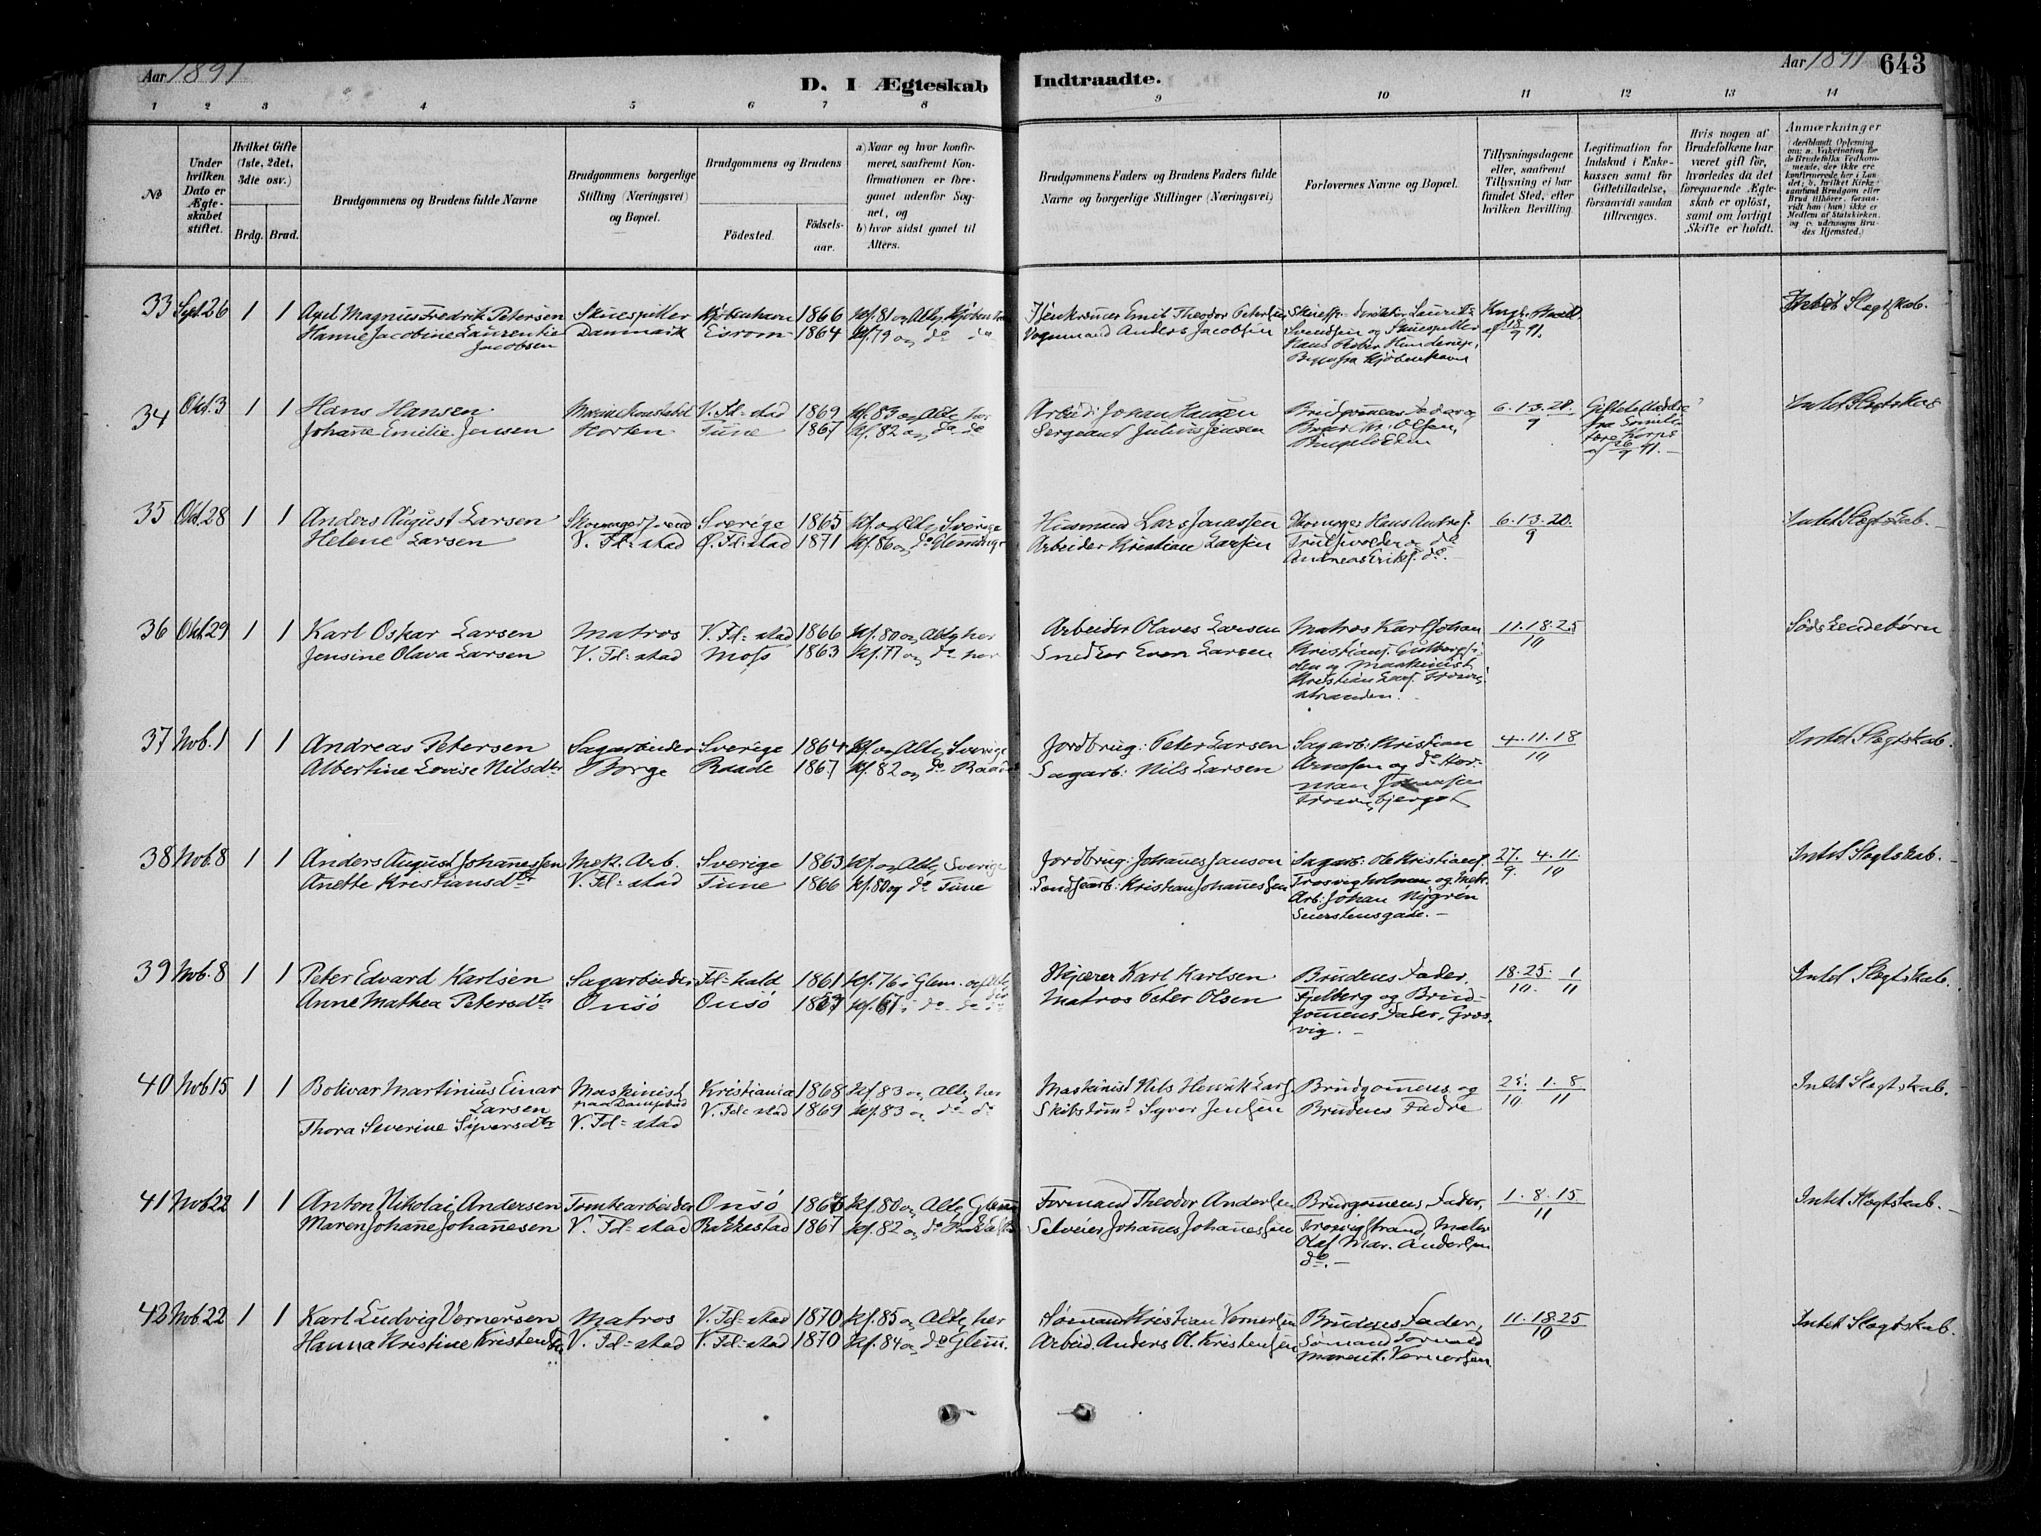 Aar 1891
D. I Ægteskab Indtraadte.
Aar 1891 643
1 2 3 4 5 6 7 8 9 10 11 12 13 14
No
Under hvilken Dato er Ægteskabet stiftet.
Hvilket Gifte (1ste, 2det, 3die osv.)
Brdg. Brud.
Brudgommens og Brudens fulde Navne
Brudgommens borgerlige Stilling (Næringsvei) og Bopæl.
Brudgommens og Brudens
Fødested. Fødselsaar.
a) Naar og hvor konfirmeret, saafremt Konfirmationen er foregaaet udenfor Sognet, og
b) hvor sidst gaaet til Alters.
Brudgommens Faders og Brudens Faders fulde Navne og borgerlige Stillinger (Næringsvei)
Forlovernes Navne og Bopæl.
Tillysningsdagene eller, saafremt Tillysning ei har fundet Sted, efter hvilken Bevilling.
Legitimation for Indskud i Enkekassen samt for Giftetilladelse, forsaavidt saadan tiltrænges.
Hvis nogen af Brudefolkene har været gift før, hvorledes da det foregaaende Ægteskab er opløst, samt om lovligt Skifte er holdt.
Anmærkninger
33 Sept. 26 1 1 Axel Magnus Fredrik Petersen Skuespiller Kjøbenhavn 1866 Kf. 81 og Altg. Kjøbenhavn Emil Theodor Petersen
Hanne Jacobine Laurentia Jacobsen Danmark 1864 Kf. 79 og do do Vognmand Anders Jacobsen
Intet Slegtskab.
34 Okt. 3 1 1 Hans Hansen V. Fd=stad 1869 Kf. 83 og Altg. her Arbeid: Johan Hansen Brudgomens Fader og 6. 13. 20. Giftetilladelse Intet Slegtskab
Johanne Emilie Jensen Horten Tune 1867 Kf. 82 og do do Sergeant Julius Jensen Olsen, 9 fra
Korps af 26/9 91. —
35 Okt. 28 1 1 Anders August Larsen Sverige 1865 Kf. og Altg. Sverige Husmand Lars Jonassen Hans 6. 13. 20. Intet Slegtskab. —
Helene Larsen V. Fd=stad Ø. Fd=stad 1871 Kf. 86 og do Glemminge Arbeider Kristian Larsen og do 9
Andreas Eriks. do. —
36 Okt. 29 1 1 Karl Oskar Larsen Matros V. Fd=stad 1866 Kf. 80 og Altg. her Arbeider Olaves Larsen Matros Karl Johan 11. 18. 25 Sødskendebørn
Jensine Olava Larsen V. Fd=stad Moss 1863 Kf. 77 og do her Snedker Even Larsen Kristians. 10
og Maskinist
Kristian Lars.
37 Nob. 1 1 1 Andreas Petersen Sagarbeider Sverige 1864 Kf. og Altg. Sverige Jordbrug: Peter Larsen Sagarb: Kristian 4. 11. 18 Intet Slegtskab.
Albertine Lovise Nilsdtr Borge Raade 1867 Kf. 82 og do Raade Sagarb: Nils Larsen Arnesen og do Her- 10
man
38 Nob. 8 1 1 Anders August Johannessen Mek. Arb. Sverige 1863 Kf. og Altg. Sverige Jordbrug: Johannes Janson Sagarb: Ole Kristians. 27. 4. 11. Intet Slegtskab. —
Anette Kristiansdtr V. Fd=stad Tune 1866 Kf. 80 og do Tune Kristian Johannessen Trosvigholmen og Mek. 9 10
Arb: Johan Nygrén
Seierstensgade. —
39 Nob. 8 1 1 Peter Edvard Karlsen Sagarbeider Fd=hald 1861 Kf. 76 i Glem. og Altg. Skjærer Karl Karlsen Brudens Fader, 18. 25. 1 Intet Slegtskab.
Anne Mathea Petersdtr Onsø Onsø Kf. 67 i do do do Matros Peter Olsen Fjelberg og Brud- 10. 11
gomens Fader, Gres-
vig. —
40 Nob 15 1 1 Bolivar Martinius Einar Larsen Maskinist paa Dampbaad Kristiania 1868 Kf 83 og Altg. her Maskinist Nils Henrik Lars. Brudgomens og 25. 1. 8 Intet Slegtskab.
Thora Severine Syversdtr V. Fd=stad V. Fd=stad 1869 Kf. 83 og do do Skibstømd Syver Jensen Brudens Fadre 10. 11
41 Nob 22 1 1 Anton Nikolai Andersen Tomtearbeider Onsø 1866 Kf. 80 og Altg. Glemm. Formand Theodor Andersen Brudgomens Fader, 1. 8. 15 Intet Slegtskab. —
Maren Johane Johannesen V. Fd=stad Rakkestad 1867 Kf. 82 og do Selveier Johannes Johannessen Trosvigstrand, Maler 11
Olaf Mar. Andersen
do. —
42 Nob. 22 1 1 Karl Ludvig Vernersen Matros V. Fd=stad 1870 Kf. 85 og Altg. her Sømand Kristian Vernersen Brudens Fader, 11. 18. 25 Intet Slegtskab.
Hanna Kristine Kristensen V. Fd=stad V. Fd=stad 1870 Kf. 84 og do Glem. Arbeid. Anders Ol. Kristensen Sømand 10
Vernersen.